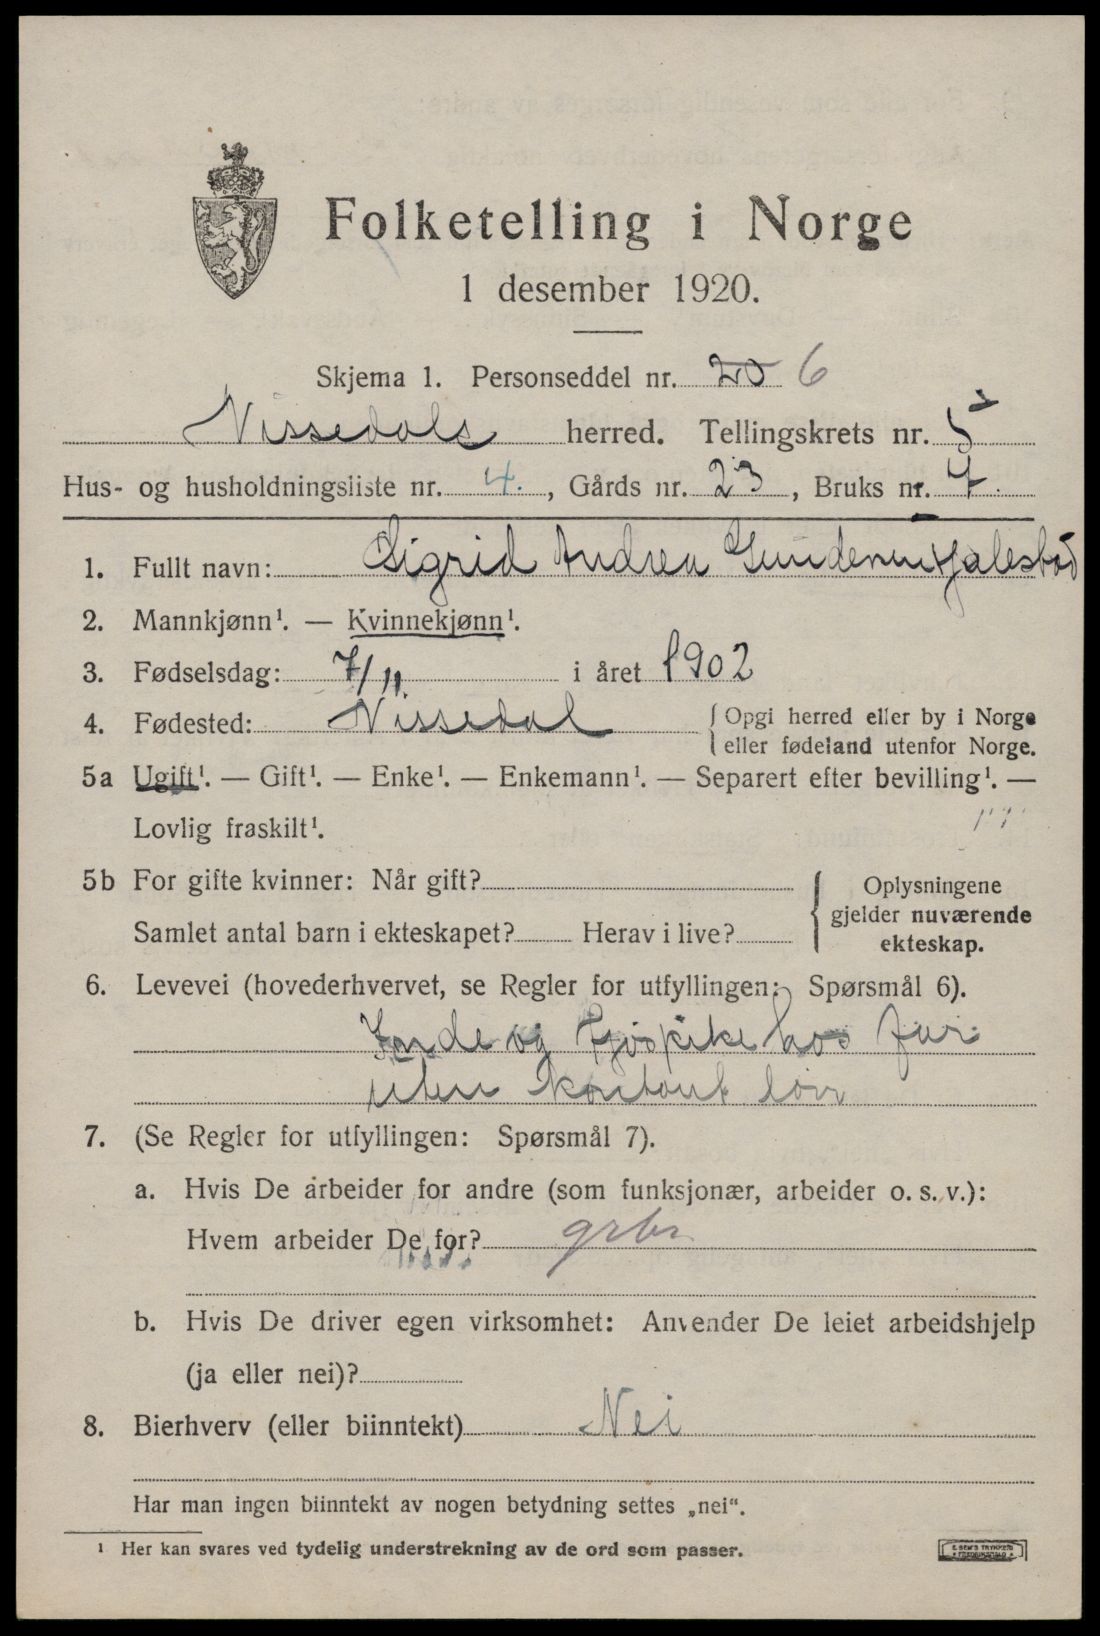 Folketelling i Norge
1 desember 1920.
Skjema 1. Personseddel nr. 20 6
Nissedals herred. Tellingskrets nr. 5
Hus- og husholdningsliste nr. 4. , Gårds nr. 23 , Bruks nr. 7.
1. Fullt navn: Sigrid Andrea
2. Mannkjønn¹. — Kvinnekjønn¹.
3. Fødselsdag: 7/11 i året 1902
4. Fødested: Nissedal {Opgi herred eller by i Norge
eller fødeland utenfor Norge.
5a Ugift¹. — Gift¹. — Enke¹. — Enkemann¹. — Separert efter bevilling¹. —
Lovlig fraskilt¹.
5b For gifte kvinner: Når gift?
Samlet antal barn i ekteskapet? Herav i live?
{ Oplysningene
gjelder nuværende
ekteskap.
6. Levevei (hovederhvervet, se Regler for utfyllingen: Spørsmål 6).
Inde og Fjøspike hos far
uten kontant løn
7. (Se Regler for utfyllingen: Spørsmål 7).
a. Hvis De arbeider for andre (som funksjonær, arbeider o. s. v.):
Hvem arbeider De for? grbr
b. Hvis De driver egen virksomhet: Anvender De leiet arbeidshjelp
(ja eller nei)?
8. Bierhverv (eller biinntekt) Nei
Har man ingen biinntekt av nogen betydning settes „nei“.
¹ Her kan svares ved tydelig understrekning av de ord som passer.
E. SEM'S TRYKKERI
FREDRIKSHALD